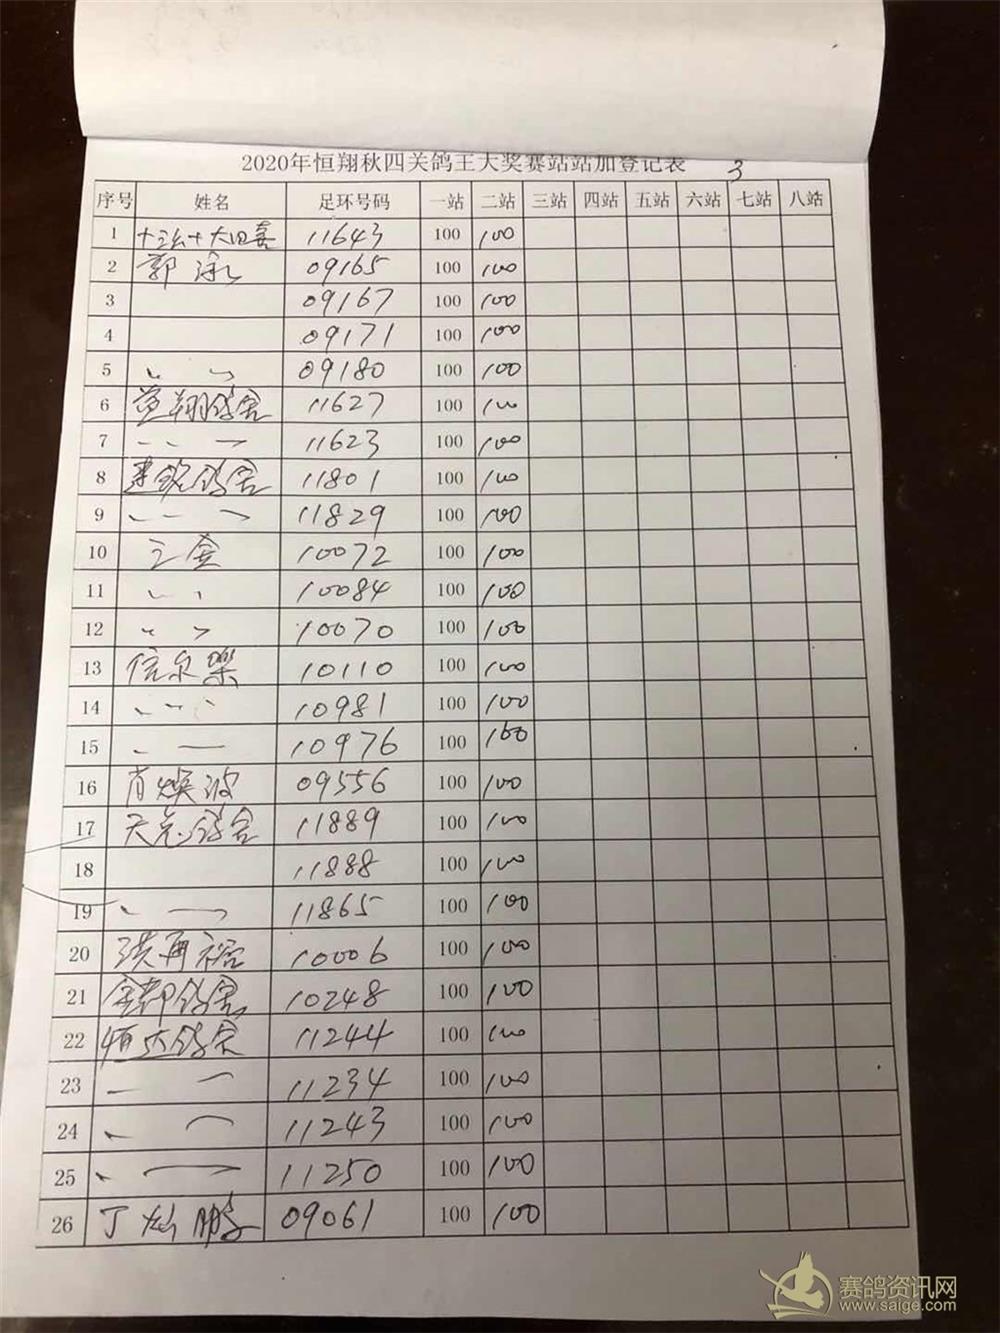 2020年恒翔秋四关鸽王大奖赛站站加登记表 3
序号 姓名 足环号码 一站 二站 三站 四站 五站 六站 七站 八站
1 11643 100 100
2 郭泳 09165 100 100
3 09167 100 100
4 09171 100 100
5 09180 100 100
6 翔鸽舍 11627 100 100
7 11623 100 100
8 建铭鸽舍 11801 100 100
9 11829 100 100
10 10072 100 100
11 10084 100 100
12 10070 100 100
13 10110 100 100
14 10981 100 100
15 10976 100 100
16 肖焕波 09556 100 100
17 鸽舍 11889 100 100
18 11888 100 100
19 11865 100 100
20 洪再裕 10006 100 100
21 金都鸽舍 10248 100 100
22 恒达鸽舍 11244 100 100
23 11234 100 100
24 11243 100 100
25 11250 100 100
26 丁灿鹏 09061 100 100
赛鸽资讯网
www.saige.com